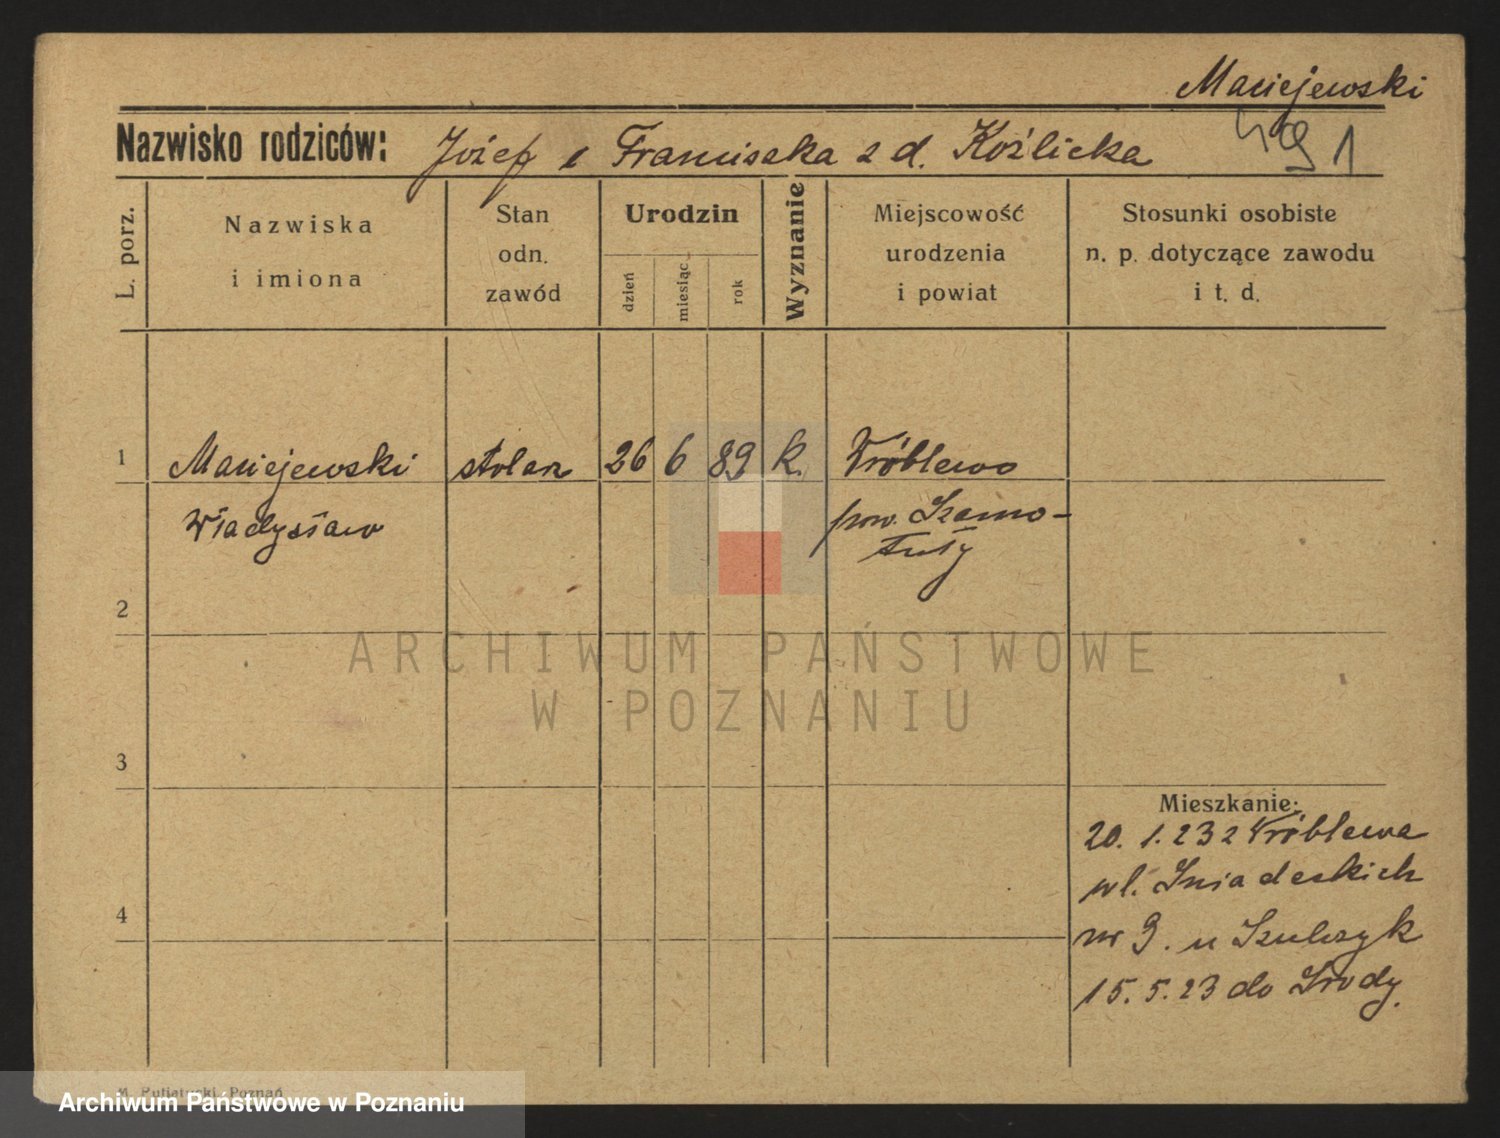 Maciejewski
Nazwisko rodziców: Józef i Franciszka z d. Koźlicka
491
L. porz.
Nazwiska
i imiona
Stan
odn.
zawód
Urodzin
dzień
miesiąc
rok
Wyznanie
Miejscowość
urodzenia
i powiat
Stosunki osobiste
n. p. dotyczące zawodu
i t. d.
1 Maciejewski stolarz 26 6 89 k. Wróblewo
Władysław pow. Szamo-
tuły
2
ARCHIWUM PAŃSTWOWE
W POZNANIU
3
Mieszkanie:
20. 1. 23 z Wróblewa
ul. Śniadeckich
4
nr 9. u Szulczyk
15. 5. 23 do Środy.
M. Putiatycki, Poznań
Archiwum Państwowe w Poznaniu